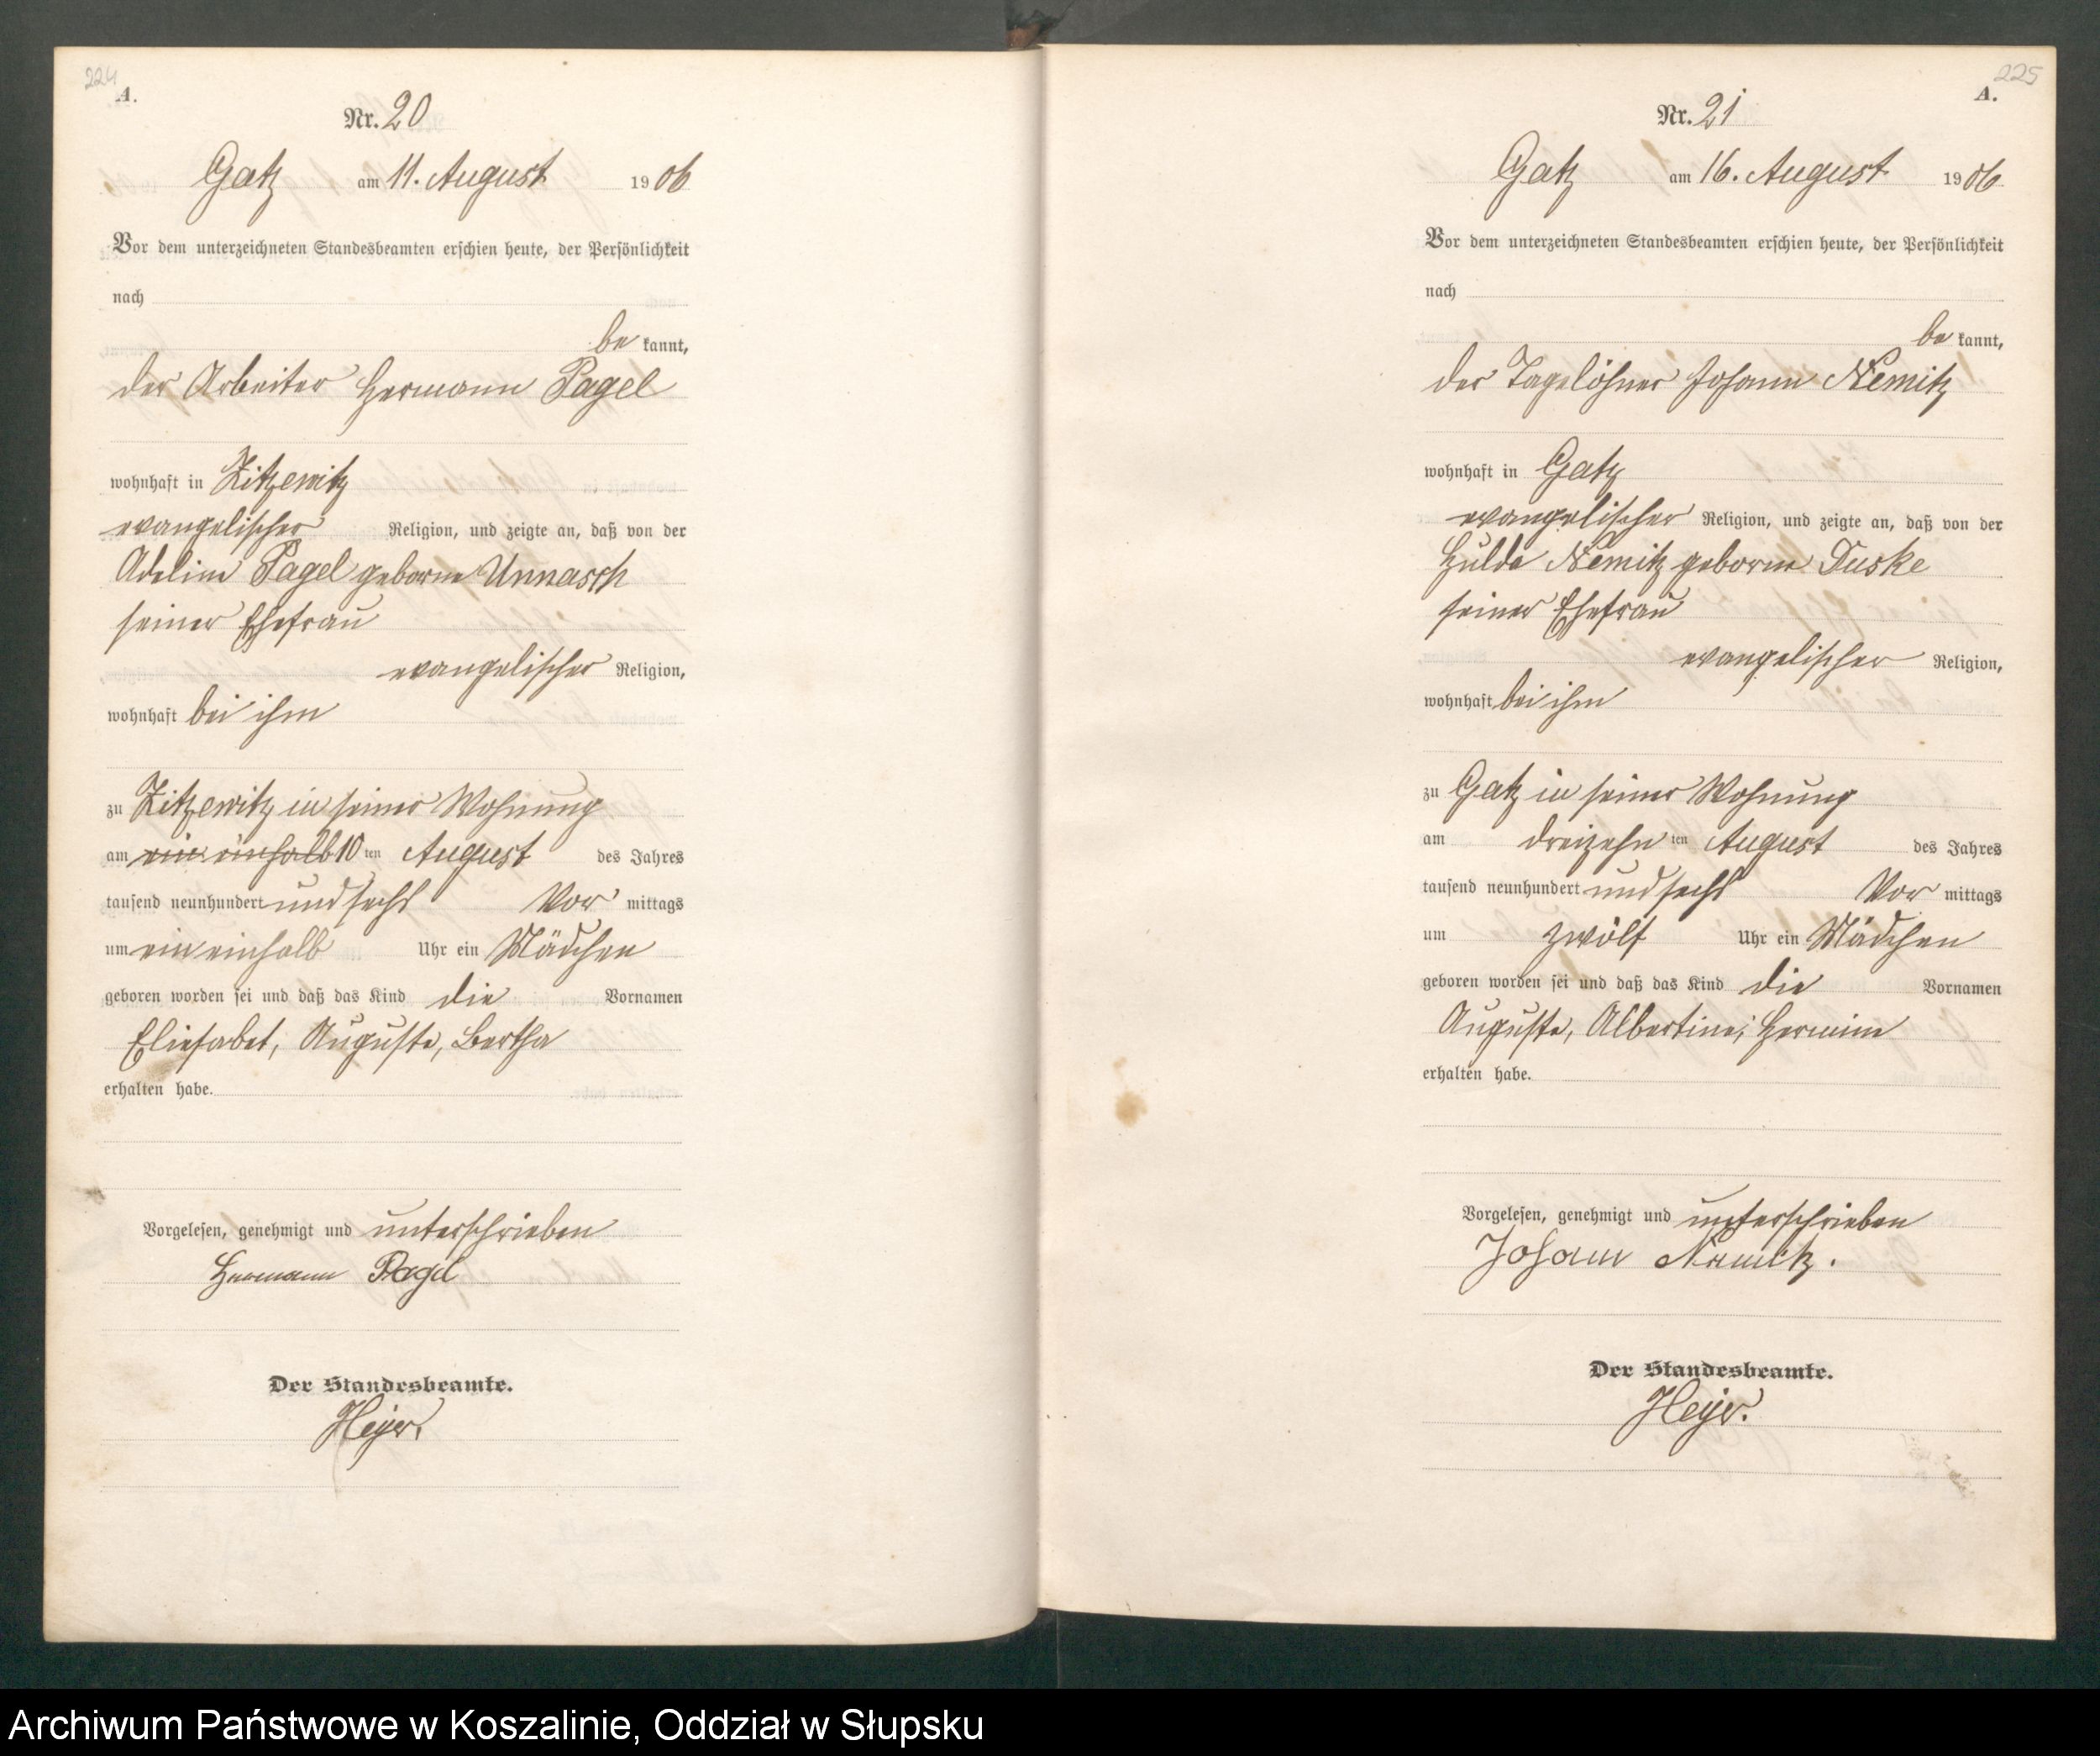 224
A.
Nr. 20
Gatz am 11. August 1906
Vor dem unterzeichneten Standesbeamten erschien heute, der Persönlichkeit
nach
be kannt,
der Arbeiter Hermann Pagel
wohnhaft in Zitzewitz
evangelischer Religion, und zeigte an, daß von der
Adeline Pagel geborne Unnasch
seiner Ehefrau
evangelischer Religion,
wohnhaft bei ihm
zu Zitzewitz in seiner Wohnung
am ein einhalb 10 ten August des Jahres
tausend neunhundert und sechs Vor mittags
um ein einhalb Uhr ein Mädchen
geboren worden sei und daß das Kind die Vornamen
Eliesabet, Auguste, Bertha
erhalten habe.
Vorgelesen, genehmigt und unterschrieben
Hermann Pagel
Der Standesbeamte.
Heyer.
225
A.
Nr. 21
Gatz am 16. August 1906
Vor dem unterzeichneten Standesbeamten erschien heute, der Persönlichkeit
nach
be kannt,
der Tagelöhner Johann Nemitz
wohnhaft in Gatz
evangelischer Religion, und zeigte an, daß von der
Hulda Nemitz geborne Duske
seiner Ehefrau
evangelischer Religion,
wohnhaft bei ihm
zu Gatz in seiner Wohnung
am dreizehn ten August des Jahres
tausend neunhundert und sechs Vor mittags
um zwölf Uhr ein Mädchen
geboren worden sei und daß das Kind die Vornamen
Auguste, Albertine, Hermine
erhalten habe.
Vorgelesen, genehmigt und unterschrieben
Johann Nemitz.
Der Standesbeamte.
Heyer.
Archiwum Państwowe w Koszalinie, Oddział w Słupsku